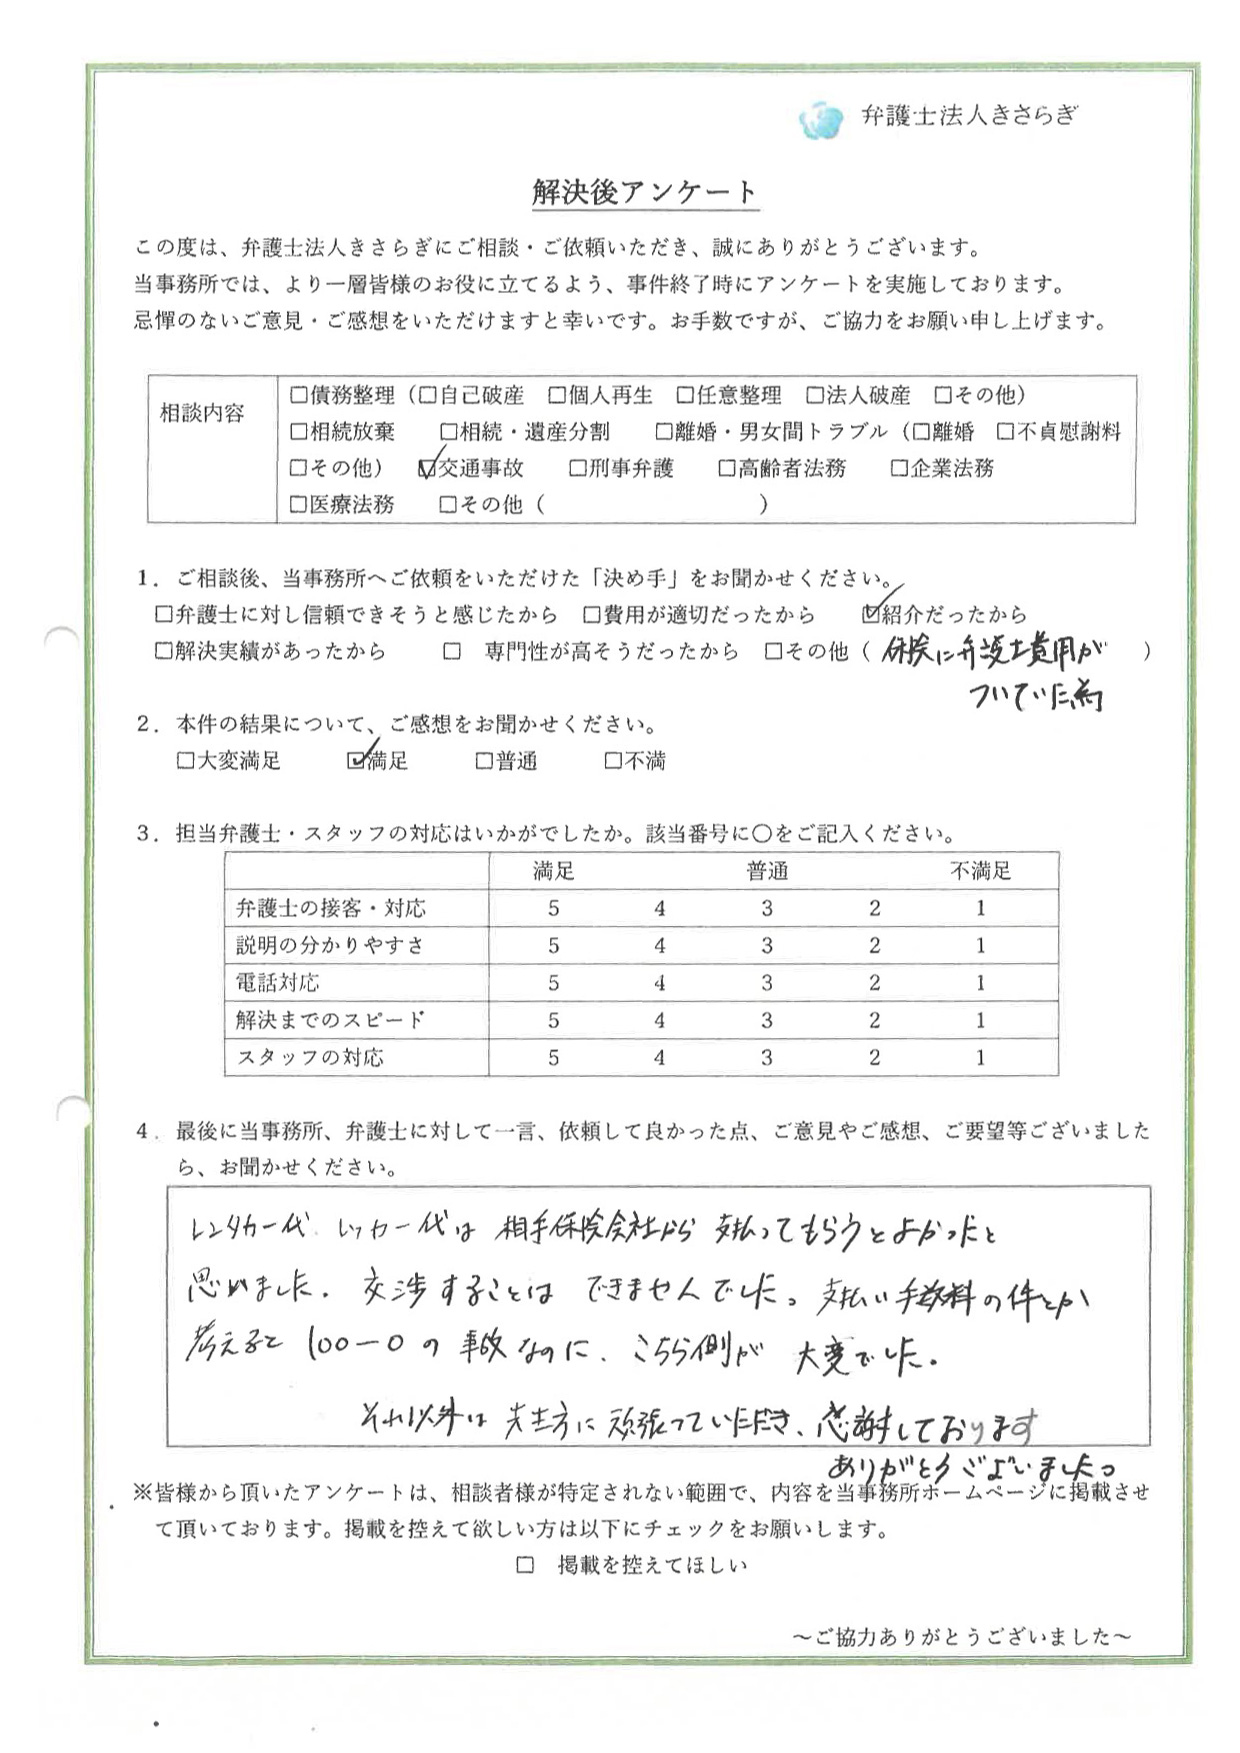 弁護士法人きさらぎ
解決後アンケート
この度は、弁護士法人きさらぎにご相談・ご依頼いただき、誠にありがとうございます。
当事務所では、より一層皆様のお役に立てるよう、事件終了時にアンケートを実施しております。
忌憚のないご意見・ご感想をいただけますと幸いです。お手数ですが、ご協力をお願い申し上げます。
相談内容
□債務整理（□自己破産　□個人再生　□任意整理　□法人破産　□その他）
□相続放棄　　□相続・遺産分割　　□離婚・男女間トラブル（□離婚　□不貞慰謝料
□その他）　☑交通事故　　□刑事弁護　　□高齢者法務　　□企業法務
□医療法務　　□その他（　　　　　　　　　　）
1．ご相談後、当事務所へご依頼をいただけた「決め手」をお聞かせください。
□弁護士に対し信頼できそうと感じたから　□費用が適切だったから　　☑紹介だったから
□解決実績があったから　　□　専門性が高そうだったから　□その他（ 保険に弁護士費用が　）
ついていた為
2．本件の結果について、ご感想をお聞かせください。
□大変満足　　　☑満足　　　□普通　　　□不満
3．担当弁護士・スタッフの対応はいかがでしたか。該当番号に〇をご記入ください。
満足　普通　不満足
弁護士の接客・対応　5　4　3　2　1
説明の分かりやすさ　5　4　3　2　1
電話対応　5　4　3　2　1
解決までのスピード　5　4　3　2　1
スタッフの対応　5　4　3　2　1
4．最後に当事務所、弁護士に対して一言、依頼して良かった点、ご意見やご感想、ご要望等ございました
ら、お聞かせください。
レンタカー代、レッカー代は 相手保険会社から 支払ってもらうとよかったと
思いました。交渉することは できませんでした。支払い手数料の件とか
考えると 100－0の 事故なのに、こちら側が 大変でした。
それ以外は 先生方に 頑張っていただき、感謝しております
ありがとうございました。
※皆様から頂いたアンケートは、相談者様が特定されない範囲で、内容を当事務所ホームページに掲載させ
て頂いております。掲載を控えて欲しい方は以下にチェックをお願いします。
□　掲載を控えてほしい
～ご協力ありがとうございました～